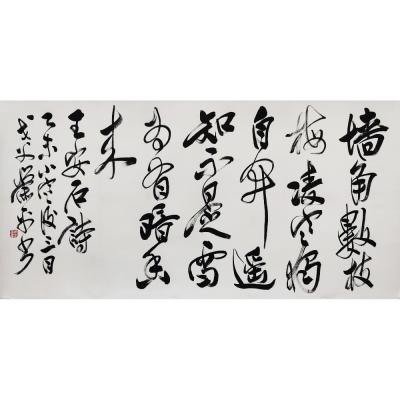 墙角数枝
梅凌寒独
自开遥
知不是雪
为有暗香
来
王安石诗
乙未小寒后三日